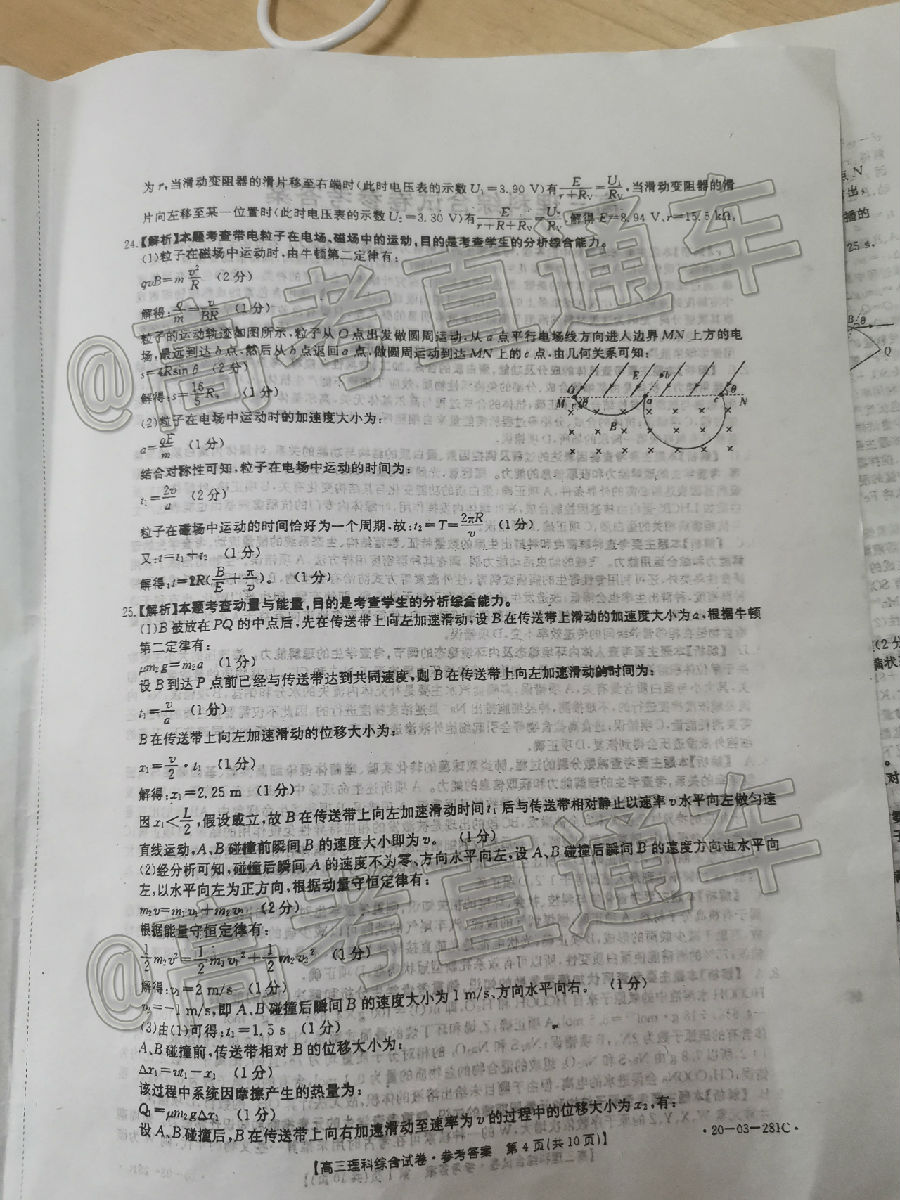 为r,当滑动变阻器的滑片移至右端时(此时电压表的示数U₁=3.90 V)有E/(r+Rv)=U₁/Rv,当滑动变阻器的滑
片向左移至某一位置时(此时电压表的示数U₂=3.30 V)有E/(r+R+Rv)=U₂/Rv,解得E=8.94 V,r=15.5 kΩ,
24.【解析】本题考查带电粒子在电场、磁场中的运动,目的是考查学生的分析综合能力。
(1)粒子在磁场中运动时,由牛顿第二定律有:
qvB=m v²/R (2分)
解得:q/m=v/BR (1分)
粒子的运动轨迹如图所示,粒子从O点出发做圆周运动,从a点平行电场线方向进人边界MN上方的电
场,最远到达b点,然后从b点返回a点,做圆周运动到达MN上的c点,由几何关系可知:
s=4Rsin θ (2分)
解得:s=16/5 R。 (1分)
(2)粒子在电场中运动时的加速度大小为:
a=qE/m (1分)
结合对称性可知,粒子在电场中运动的时间为:
t₁=2v/a (2分)
粒子在磁场中运动的时间恰好为一个周期,故:t₂=T=2πR/v (1分)
又:t=t₁+t₂ (1分)
解得:t=2R(B/E+π/v)。 (1分)
M θ O E b a θ N
B
25.【解析】本题考查动量与能量,目的是考查学生的分析综合能力。
(1)B被放在PQ的中点后,先在传送带上向左加速滑动,设B在传送带上滑动的加速度大小为a,根据牛顿
第二定律有:
μm₂g=m₂a (1分)
设B到达P点前已经与传送带达到共同速度,则B在传送带上向左加速滑动的时间为:
t₁=v/a (1分)
B在传送带上向左加速滑动的位移大小为:
x₁=v/2·t₁ (1分)
解得:x₁=2.25 m (1分)
因x₁<L/2,假设成立,故B在传送带上向左加速滑动时间t₁后与传送带相对静止以速率v水平向左做匀速
直线运动,A、B碰撞前瞬间B的速度大小即为v。 (1分)
(2)经分析可知,碰撞后瞬间A的速度不为零、方向水平向左,设A、B碰撞后瞬间B的速度方向也水平向
左,以水平向左为正方向,根据动量守恒定律有:
(2分)
根据能量守恒定律有:
(1分)
m/s (1分)
=-1 m/s,即A、B碰撞后瞬间B的速度大小为1 m/s、方向水平向右。 (1分)
(3)由(1)可得:t₁=1.5 s (1分)
A、B碰撞前,传送带相对B的位移大小为:
Δx₁=vt₁-x₁ (1分)
该过程中系统因摩擦产生的热量为:
Q₁=μm₂gΔx₁ (1分)
设A、B碰撞后,B在传送带上向右加速滑动至速率为v的过程中的位移大小为x₂,有:
【高三理科综合试卷·参考答案 第4页(共10页)】
·20-03-281C·
@高考直通车
@高考直通车